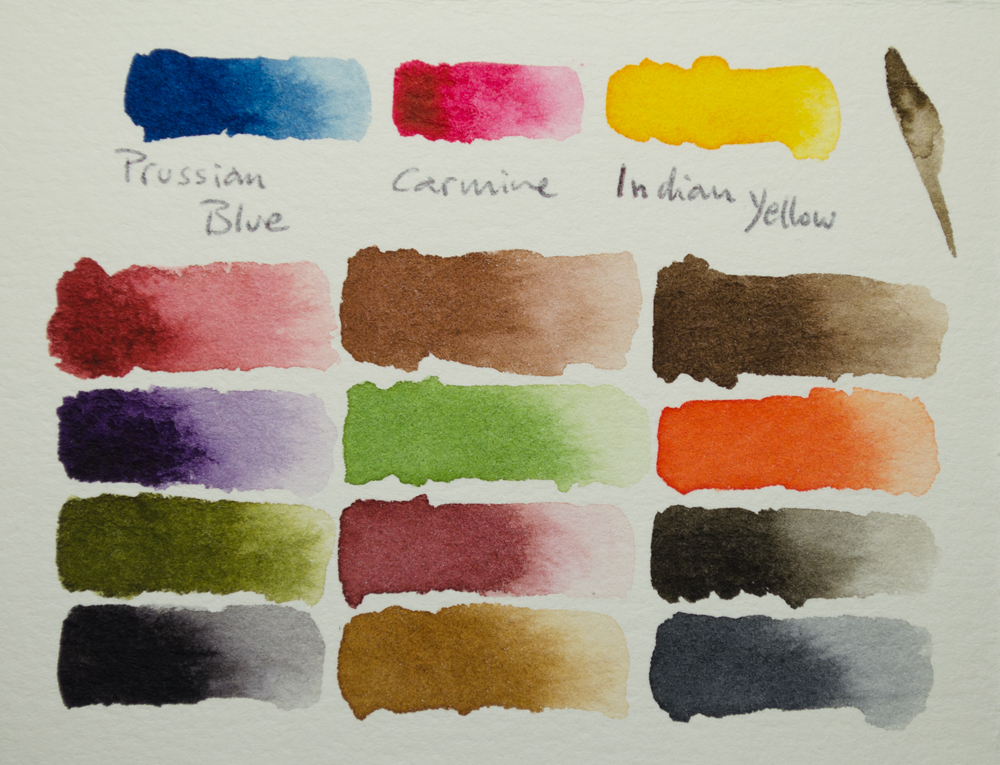 Prussian
Blue
Carmine
Indian
Yellow